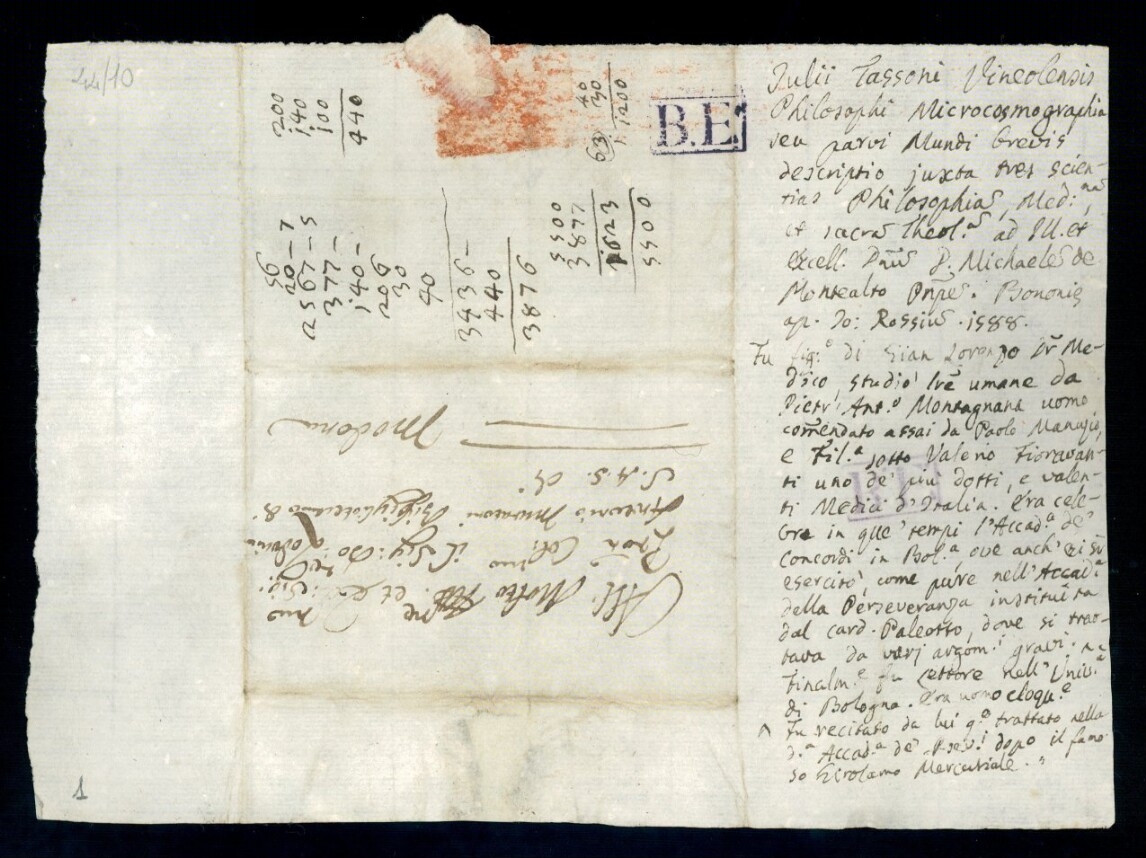 44/10
200
140
100
440
40
30
1200
63
B.E.
95
240-7
2567-5
377-
140-
206
30
40
3436-
440
3876
5500
3877
1623
5500
All' Molto Re et
Pron Col:mo il Sig: Lodovi
Antonio Muratori Bibliotecario di
S. A. S. di
Modona
1
Julii Tassoni Vineolensis
Philosophi Microcosmographia
seu parvi Mundi brevis
descriptio juxta tres scien-
tias Philosophiā, Med:nā
et sacrā Theol.ā ad Ill. et
excell. Dnū D. Michaelē de
Montealto Pnpē. Bononię
ap. Jo: Rossiū. 1588.
Fu fig.º di Gian Lorenzo Me-
dico, studiò lrē umane da
Pietr' Ant.º Montagnana uomo
comēdato assai da Paolo Manuzio,
e Fil.ª sotto Valerio Fioravan-
ti uno de' più dotti, e valen-
ti Medici d'Italia. Era cele-
bre in que' tempi l'Accad.ª de'
Concordi in Bol.ª, ove anch'ei si
esercitò, come pure nell'Accad.ª
della Perseveranza instituita
dal card. Paleotto, dove si trat-
tava da varj argom.i gravi.
Finalm.e fu Lettore nell'Univ.ª
di Bologna. Era uomo eloqu.e
^ Fu recitato da lui q.º trattato nella
d.ª Accad.ª de' dopo il famo
so Girolamo Mercuriale.